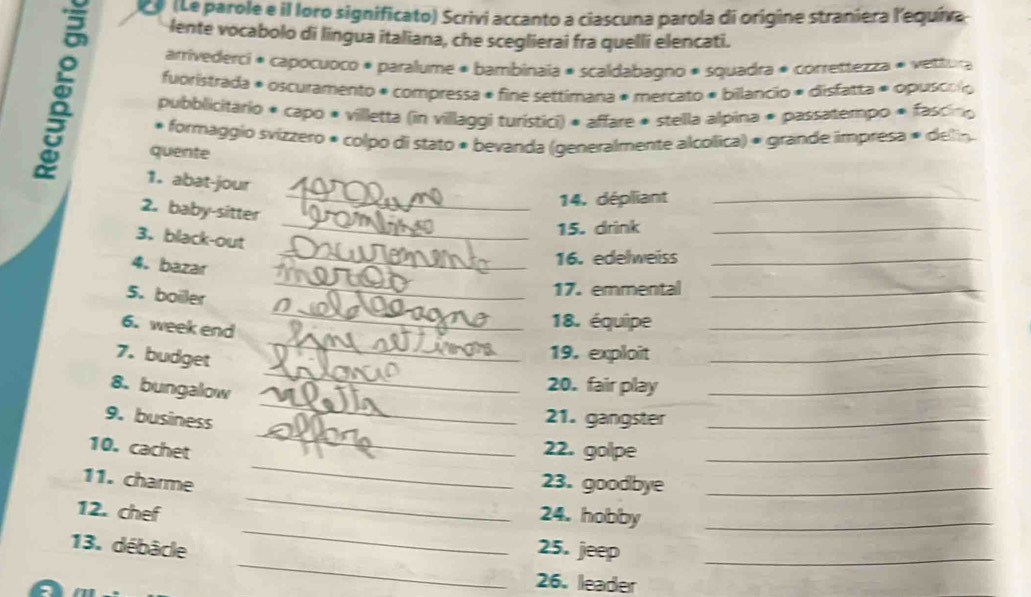 Recupero guid
(Le parole e il loro significato) Scrivi accanto a ciascuna parola di origine straniera l'equiva-
lente vocabolo di lingua italiana, che sceglierai fra quelli elencati.
arrivederci • capocuoco • paralume • bambinaia • scaldabagno • squadra • correttezza • vettura
fuoristrada • oscuramento • compressa • fine settimana • mercato • bilancio • disfatta • opuscolo
pubblicitario • capo • villetta (in villaggi turistici) • affare • stella alpina • passatempo • fascino
• formaggio svizzero • colpo di stato • bevanda (generalmente alcolica) • grande impresa • delin-
quente
1. abat-jour
2. baby-sitter
3. black-out Oscuramento
4. bazar mercato
5. boiler
6. week end fine settimana
7. budget bilancio
8. bungalow villetta
9. business affare
10. cachet
11. charme
12. chef
13. débâcle
14. dépliant
15. drink
16. edelweiss
17. emmental
18. équipe
19. exploit
20. fair play
21. gangster
22. golpe
23. goodbye
24. hobby
25. jeep
26. leader